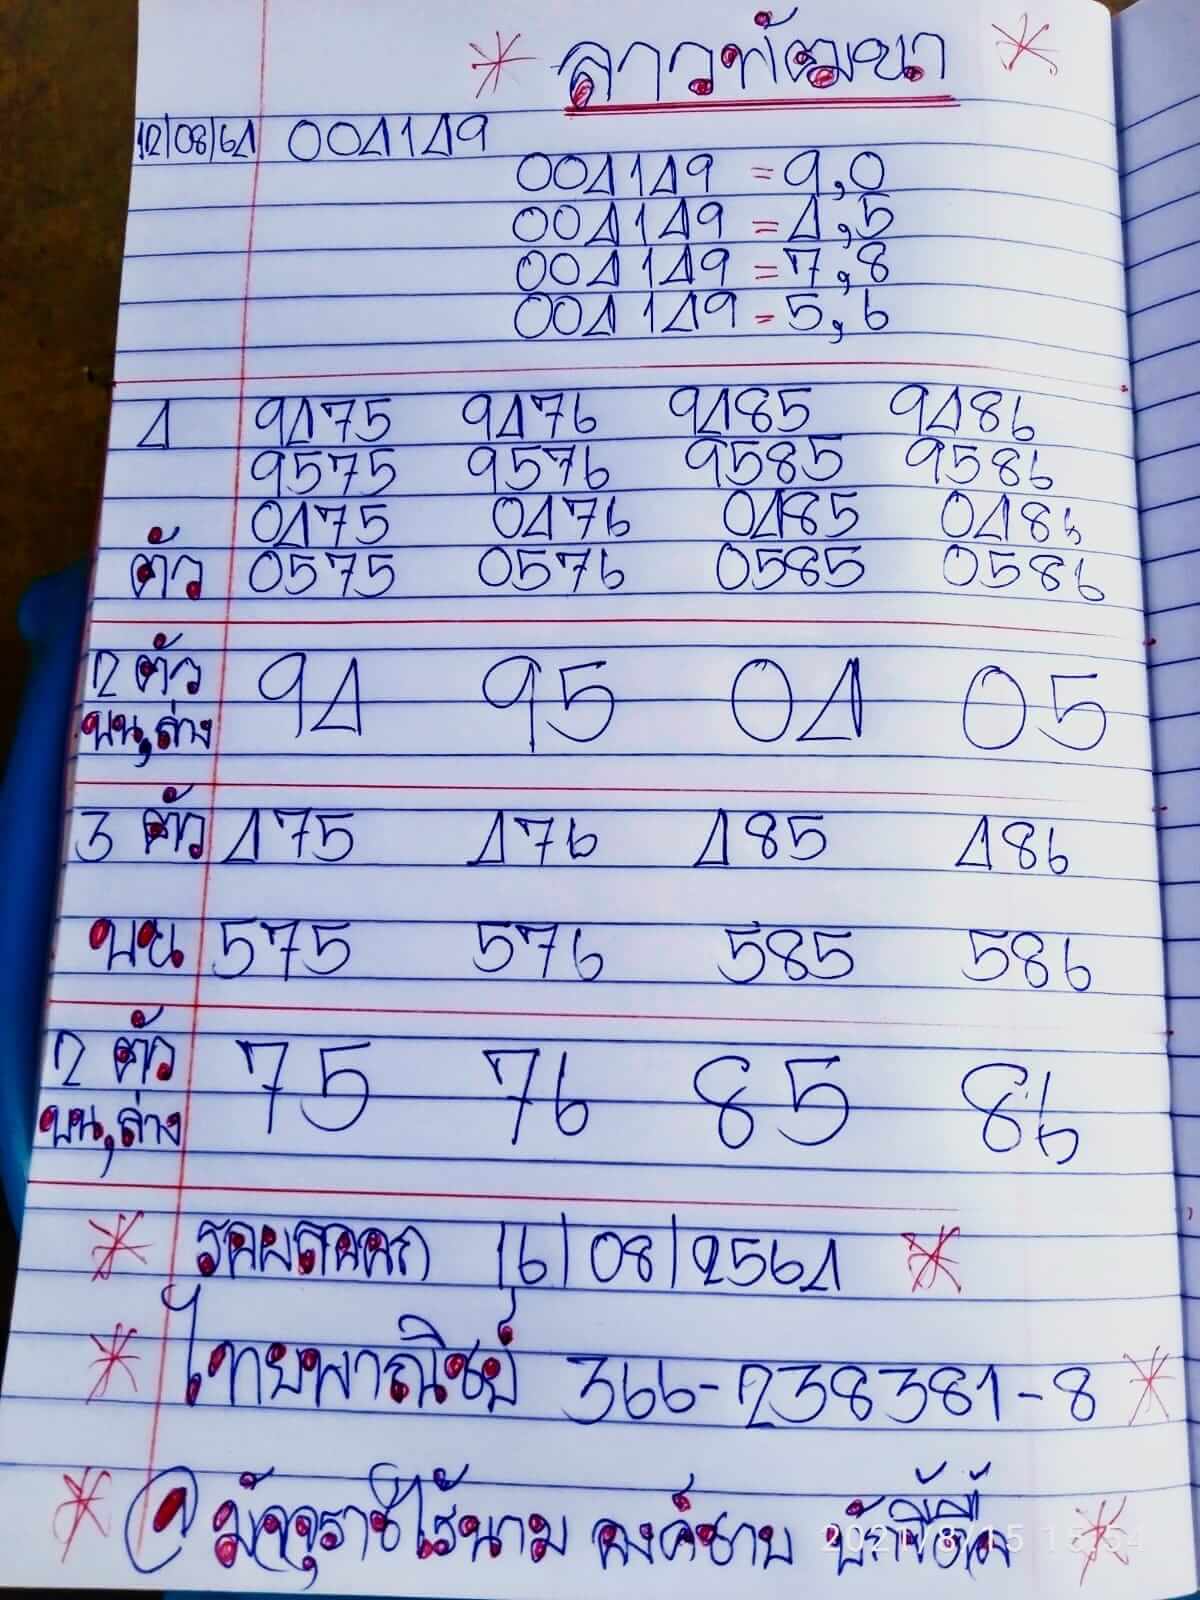 ลาวพัฒนา
12/08/64 004149
004149 = 9,0
004149 = 4,5
004149 = 7,8
004149 = 5,6
4 9475 9476 9485 9486
9575 9576 9585 9586
0475 0476 0485 0486
ตัว 0575 0576 0585 0586
2 ตัว 94 95 04 05
บน,ล่าง
3 ตัว 475 476 485 486
บน 575 576 585 586
2 ตัว 75 76 85 86
บน,ล่าง
16/08/2564
ไทยพาณิชย์ 366-238381-8
2021/8/15 15:54